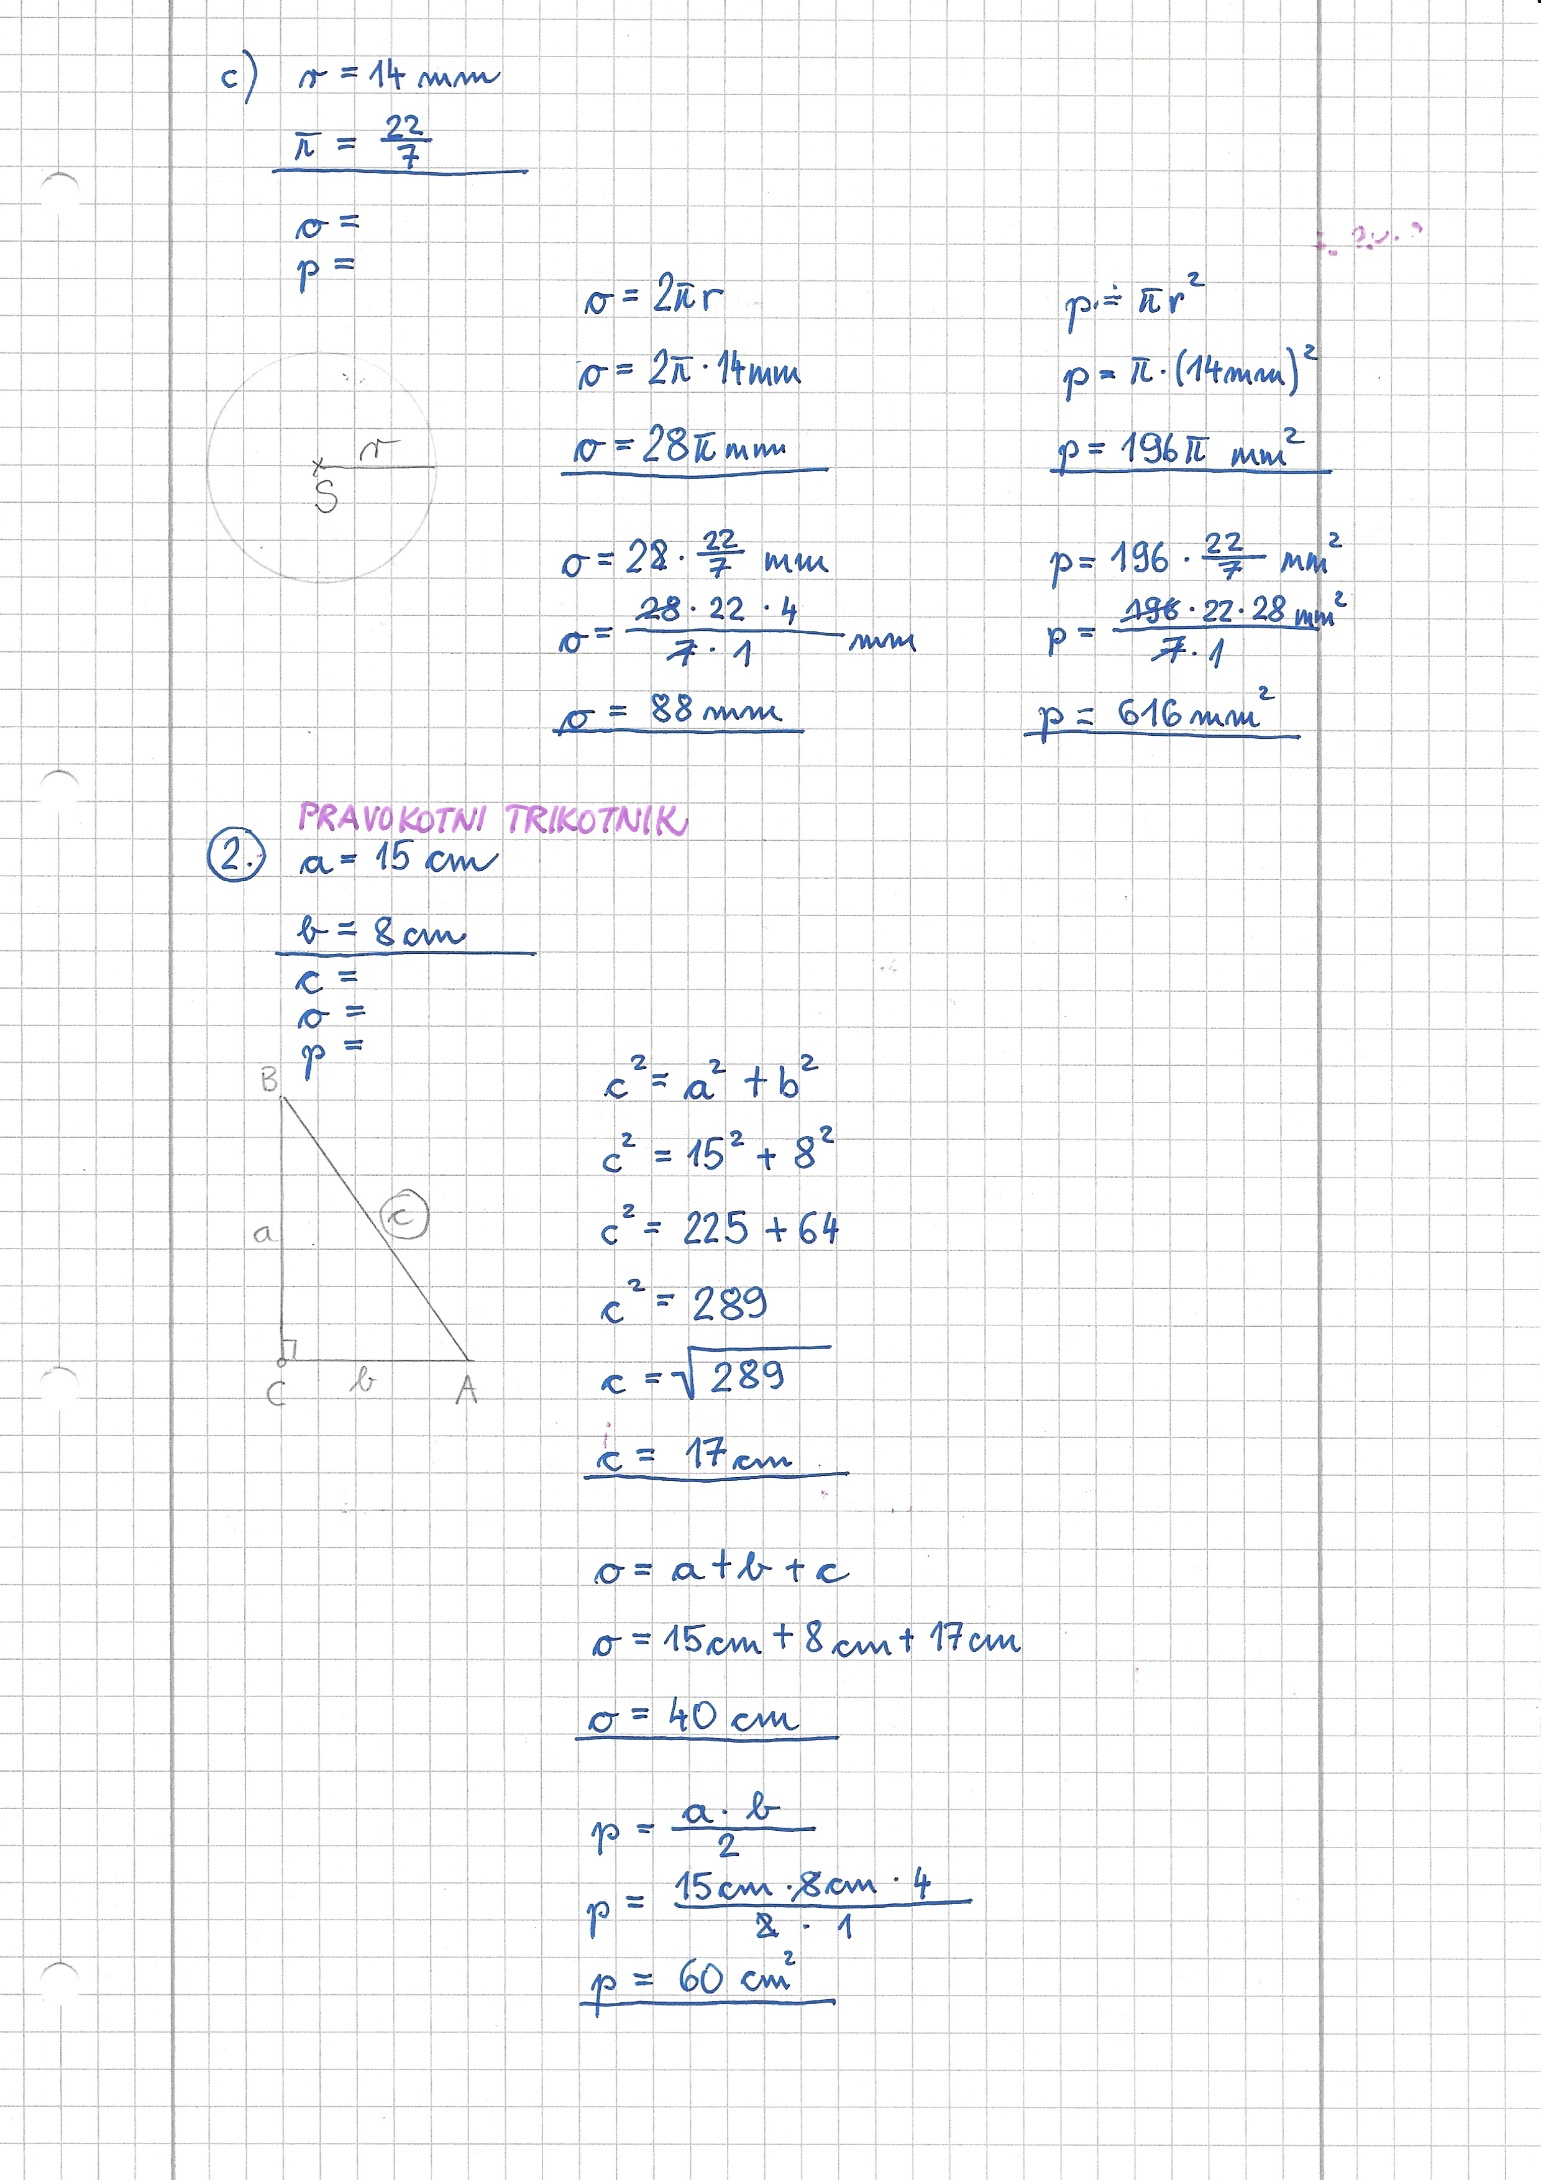 c) r = 14 mm
π = 22/7
o =
p =
r
S
o = 2πr
o = 2π · 14mm
o = 28π mm
o = 28 · 22/7 mm
o = 28 · 22 · 4 / 7 · 1 mm
o = 88 mm
p = πr²
p = π · (14mm)²
p = 196π mm²
p = 196 · 22/7 mm²
p = 196 · 22 · 28 mm² / 7 · 1
p = 616 mm²
PRAVOKOTNI TRIKOTNIK
2. a = 15 cm
b = 8 cm
c =
o =
p =
B
a
c
C b A
c² = a² + b²
c² = 15² + 8²
c² = 225 + 64
c² = 289
c = √289
c = 17 cm
o = a + b + c
o = 15cm + 8cm + 17cm
o = 40 cm
p = a · b / 2
p = 15cm · 8cm · 4 / 2 · 1
p = 60 cm²